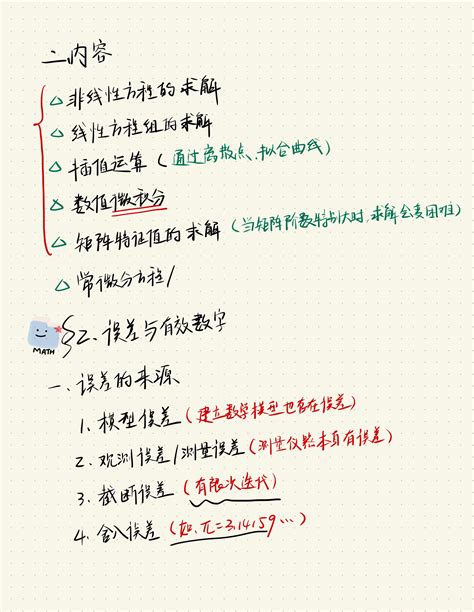 二、内容
△ 非线性方程的求解
△ 线性方程组的求解
△ 插值运算（通过离散点、拟合曲线）
△ 数值微积分
△ 矩阵特征值的求解（当矩阵阶数特别大时,求解会麦困难）
△ 常微分方程/
MATH §2. 误差与有效数字
一、误差的来源
1. 模型误差（建立数学模型也存在误差）
2. 观测误差/测量误差（测量仪器本身有误差）
3. 截断误差（有限次迭代）
4. 舍入误差（如、π=3.14159…）